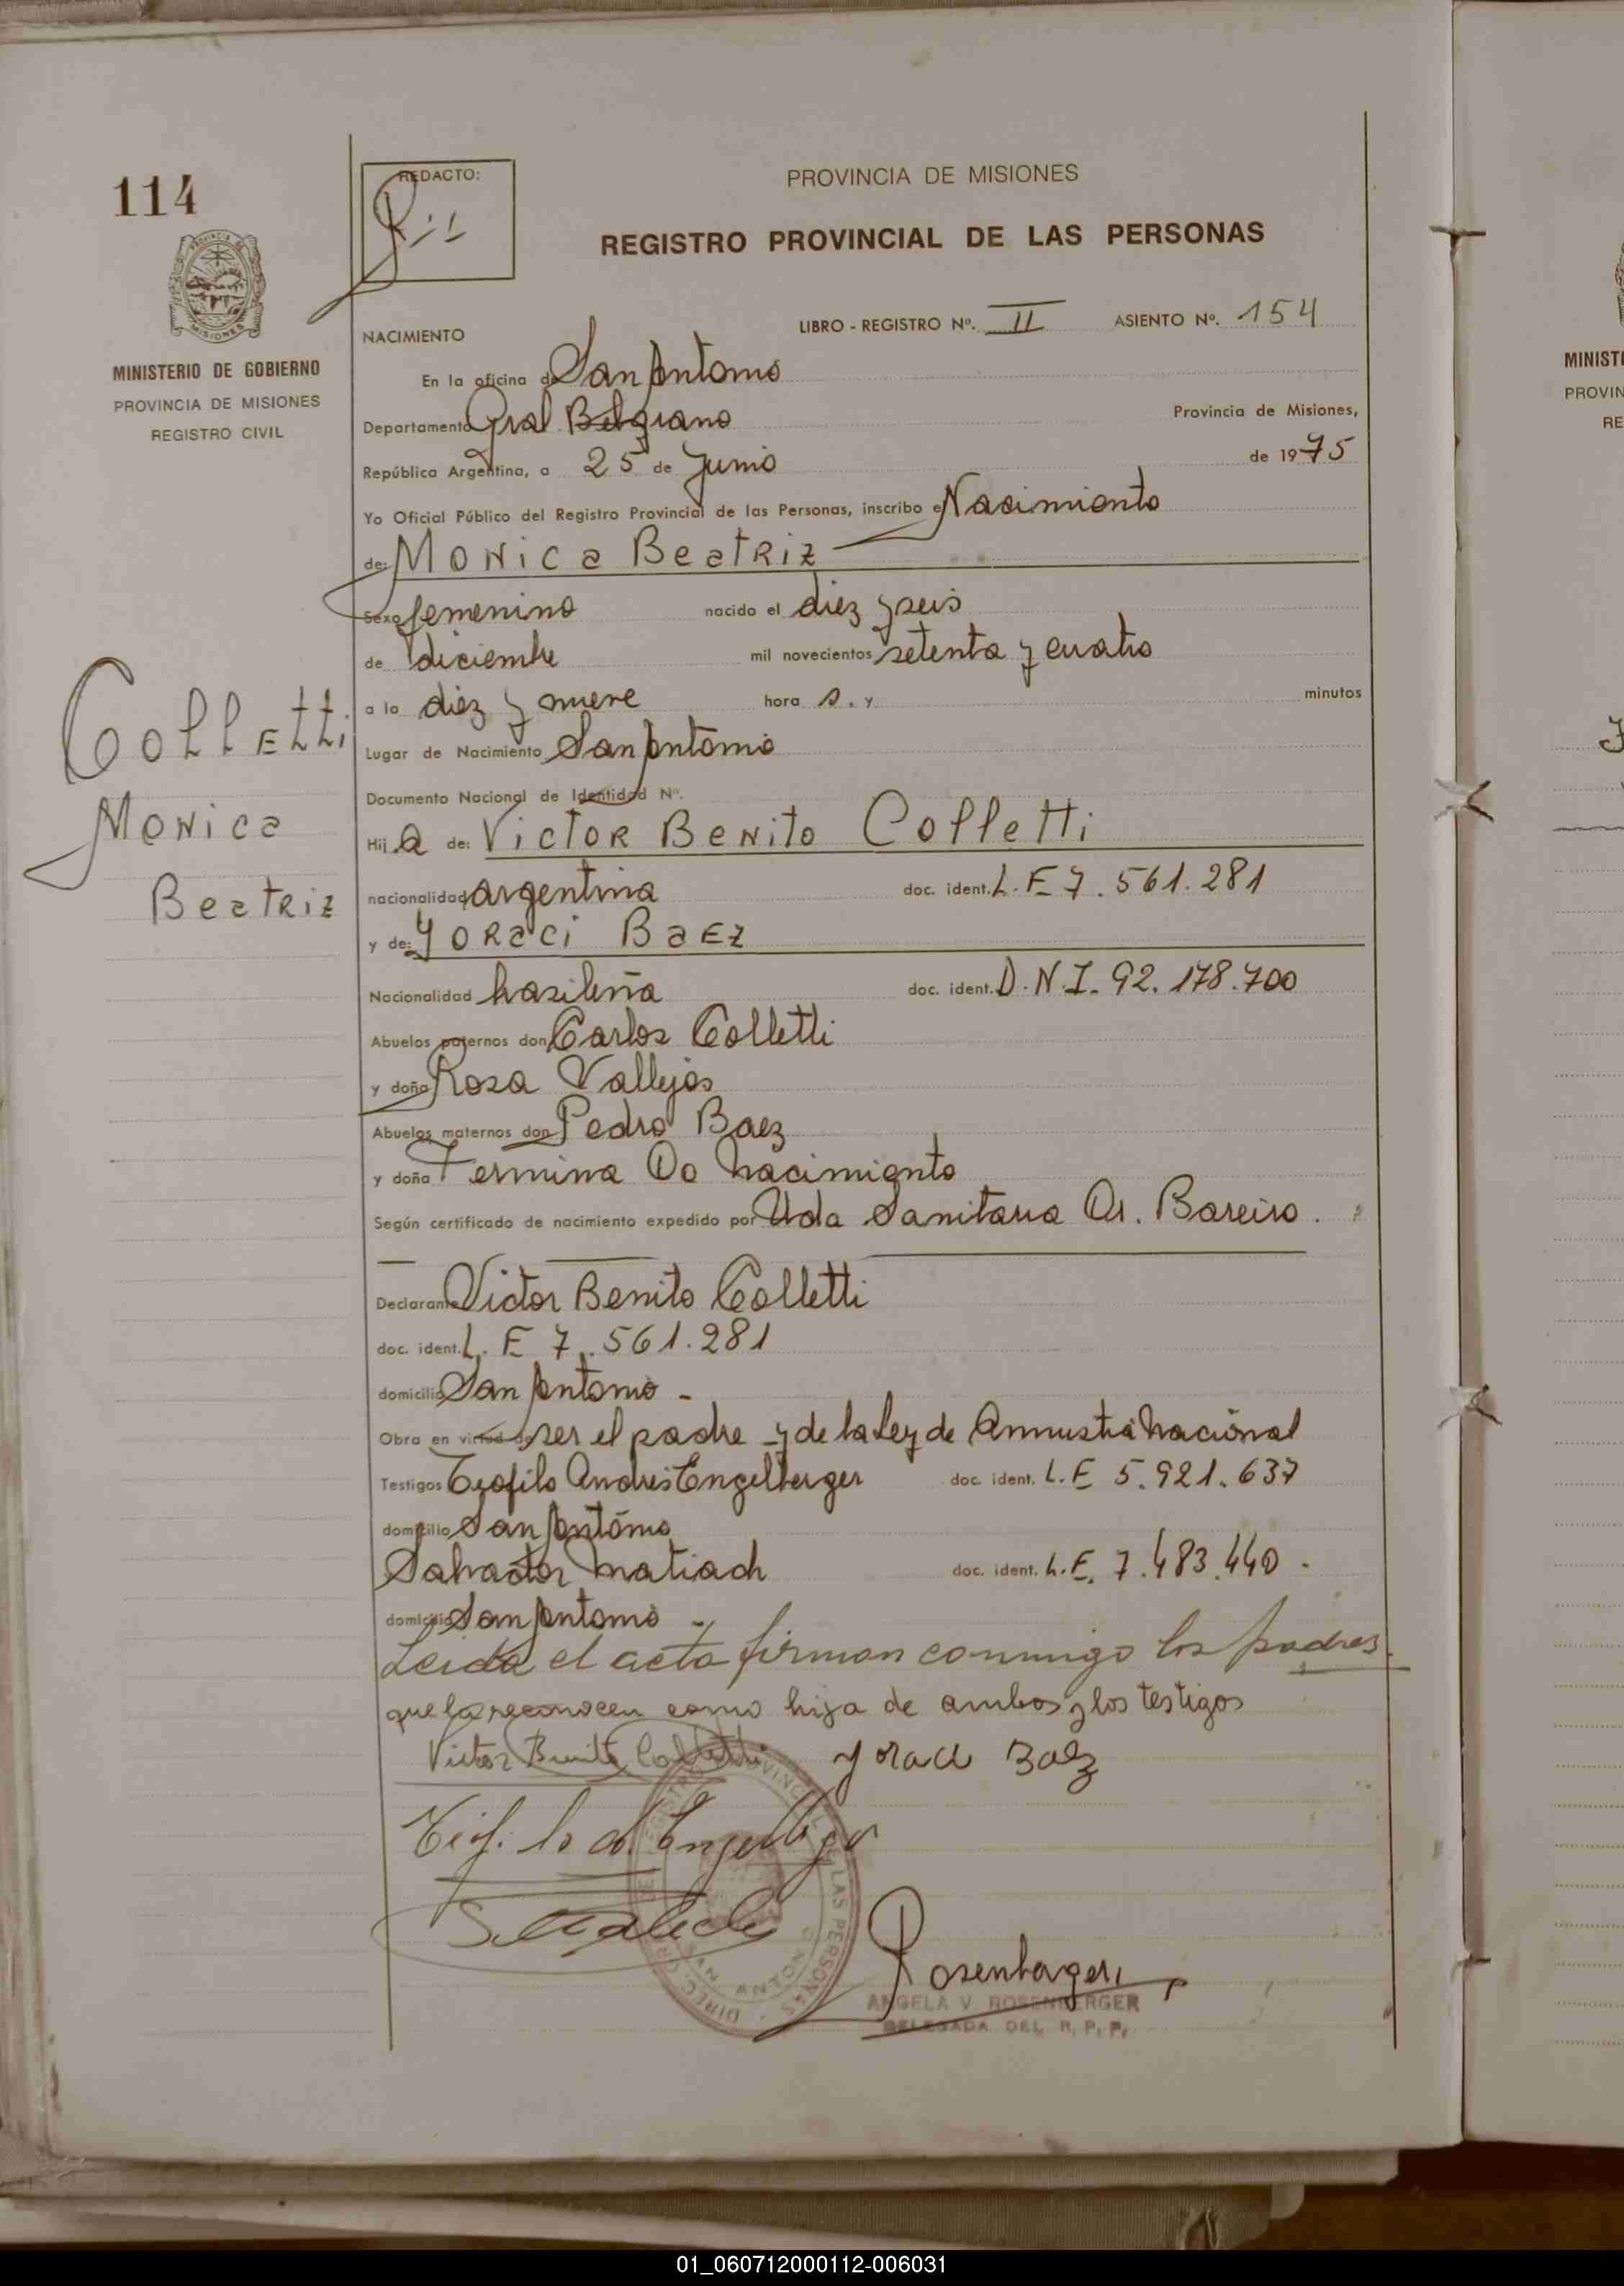 114
REDACTO:
PROVINCIA DE MISIONES
REGISTRO PROVINCIAL DE LAS PERSONAS
MINISTERIO DE GOBIERNO
PROVINCIA DE MISIONES
REGISTRO CIVIL
NACIMIENTO
LIBRO - REGISTRO Nº. II ASIENTO Nº. 154
En la oficina de San Antonio
Departamento Gral Belgrano Provincia de Misiones,
República Argentina, a 25 de Junio de 1975
Yo Oficial Público del Registro Provincial de las Personas, inscribo el Nacimiento
de: MONICA BEATRIZ
Sexo femenino nacido el diez y seis
de diciembre mil novecientos setenta y cuatro
a la diez y nueve hora s. y minutos
Lugar de Nacimiento San Antonio
Documento Nacional de Identidad Nº.
Hij a de: VICTOR BENITO COLLETTI
nacionalidad argentina doc. ident. L. E 7. 561. 281
y de: YORACI BAEZ
Nacionalidad brasileña doc. ident. D. N. I. 92. 178. 700
Abuelos paternos don Carlos Colletti
y doña Rosa Vallejos
Abuelos maternos don Pedro Baez
y doña Termina Do Nacimiento
Según certificado de nacimiento expedido por Uda Sanitaria Dr. Bareiro.
Colletti
Monica
Beatriz
Declarante Victor Benito Colletti
doc. ident. L. E 7. 561. 281
domicilio San Antonio -
Obra en virtud de ser el padre y de la Ley de Amnustia Nacional
Testigos Teofilo Andres Engelberger doc. ident. L. E 5. 921. 637
domicilio San Antonio
Salvador Matiach doc. ident. L. E. 7. 483. 440 .
domicilio San Antonio -
Leida el acta firman conmigo los padres
que la reconocen como hija de ambos y los testigos
Victor Benito Colletti Yoraci Baez
Rosenberger
ANGELA V. ROSENBERGER
DELEGADA DEL R. P. P.
MINIST
PROVIN
RE
01_060712000112-006031